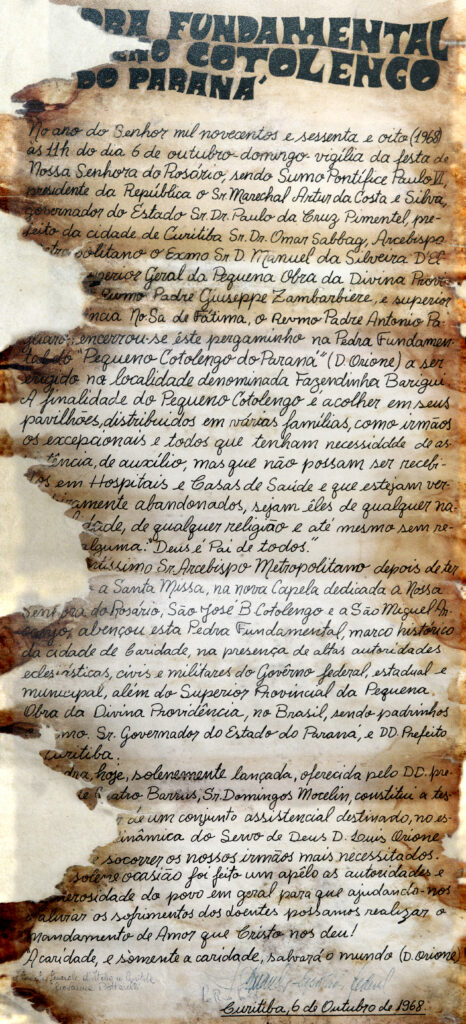 DRA FUNDAMENTAL
NO COTOLENGO
DO PARANÁ
No ano do Senhor mil novecentos e sessenta e oito (1968)
às 11h do dia 6 de outubro-domingo vigília da festa de
Nossa Senhora do Rosário, sendo Sumo Pontífice Paulo VI,
presidente da República o Sr Marechal Artur da Costa e Silva,
governador do Estado Sr. Dr. Paulo da Cruz Pimentel, pre-
feito da cidade de Curitiba Sr. Dr. Omar Sabbag, Arcebispo
politano o Exmo Sr D. Manuel da Silveira D'El
Superior Geral da Pequena Obra da Divina Provi
Padre Giuseppe Zambarbiere, e superior
ncia N. Sa de Fátima, o Revmo Padre Antonio Pa
encerrou-se êste pergaminho na Pedra Fundamen
tal do "Pequeno Cotolengo do Paraná" (D. Orione) a ser
erigido na localidade denominada Fazendinha Barigui
A finalidade do Pequeno Cotolengo é acolher em seus
pavilhões, distribuídos em várias famílias, como irmãos
os excepcionais e todos que tenham necessiddde de as-
tência, de auxílio, mas que não possam ser recebi-
os em Hospitais e Casas de Saúde e que estejam ver-
iramente abandonados, sejam êles de qualquer na-
lidade, de qualquer religião e até mesmo sem re-
alguma: "Deus é Pai de todos."
ntíssimo Sr. Arcebispo Metropolitano depois de ter
a Santa Missa, na nova Capela dedicada a Nossa
Senhora do Rosário, São José B Cotolengo e a São Miguel Ar-
canjo, abençou esta Pedra Fundamental, marco histórico
da cidade de Caridade, na presença de altas autoridades
eclesiásticas, civis e militares do Govêrno federal, estadual e
municipal, além do Superior Provincial da Pequena
Obra da Divina Providência, no Brasil, sendo padrinhos
mo. Sr. Governador do Estado do Paraná, e DD. Prefeito
Curitiba.
dra, hoje, solenemente lançada, oferecida pelo DD. pre-
Quatro Barras, Sr. Domingos Mocelin, constitui a tes-
de um conjunto assistencial destinado, no es-
inâmica do Servo de Deus D. Luis Orione
socorrer os nossos irmãos mais necessitados.
solene ocasião foi feito um apêlo as autoridades e
nerosidade do povo em geral para que ajudando-nos
aliviar os sofrimentos dos doentes possamos realizar o
mandamento de Amor que Cristo nos deu!
A caridade, e sòmente a caridade, salvará o mundo (D. Orione)
Curitiba, 6 de Outubro de 1968.